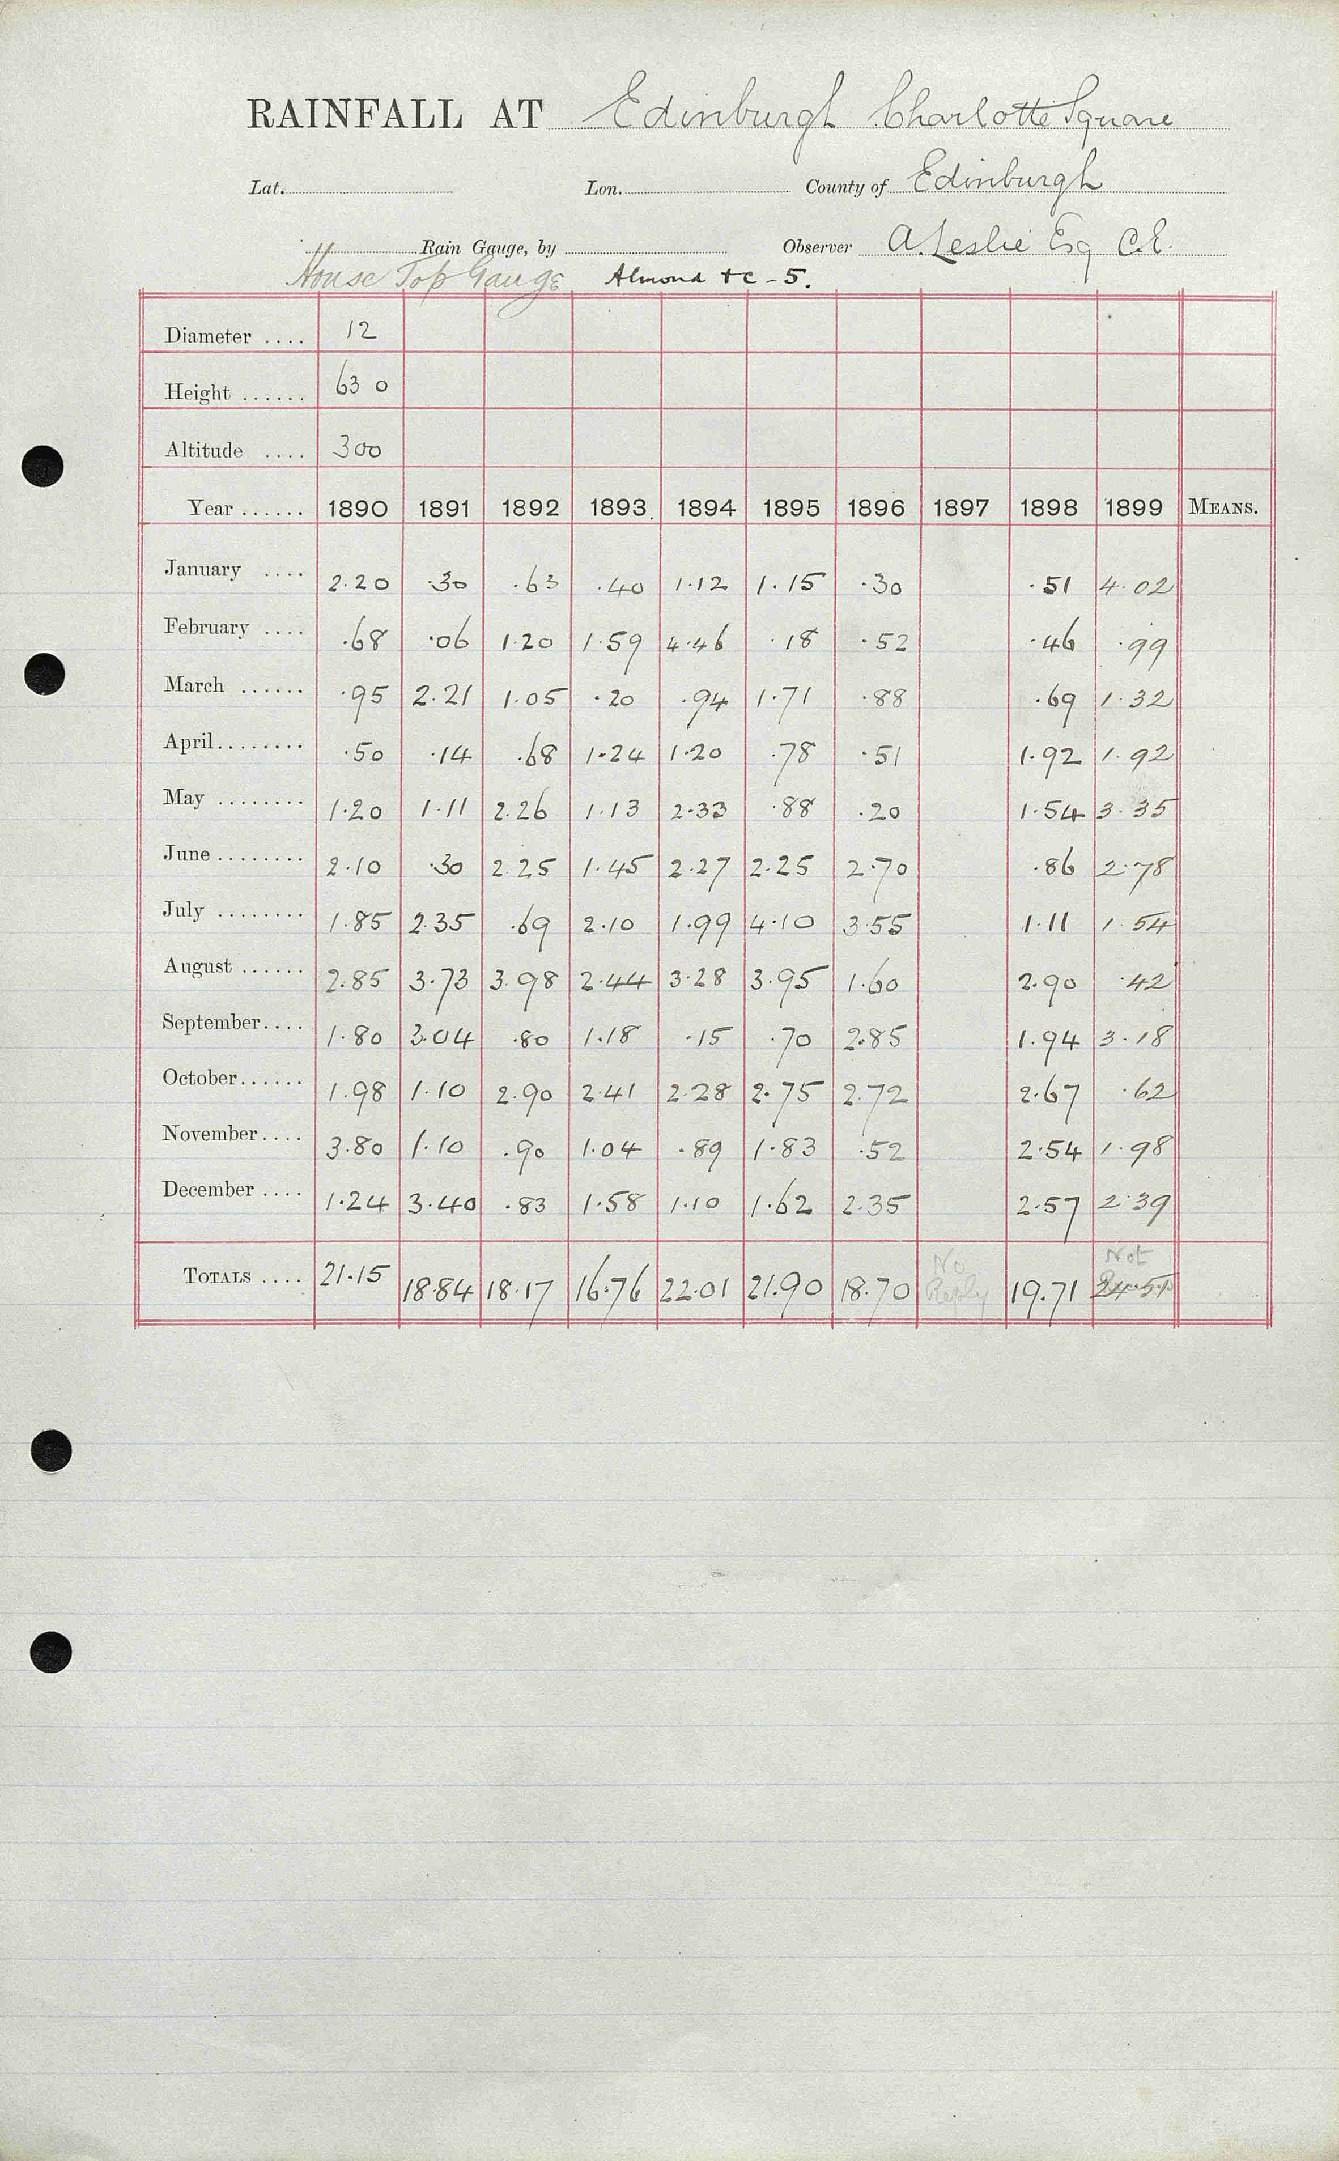 RAINFALL AT Edinburgh Charlotte Square
Lat. Lon. County of Edinburgh
Rain Gauge, by Observer A. Leslie Esq C.E.
House Top Gauge Almond & C - 5.
Diameter .... 12
Height ...... 63 0
Altitude .... 300
Year ...... 1890 1891 1892 1893 1894 1895 1896 1897 1898 1899 MEANS.
January .... 2.20 .30 .63 .40 1.12 1.15 .30 .51 4.02
February .... .68 .06 1.20 1.59 4.46 .18 .52 .46 .99
March ...... .95 2.21 1.05 .20 .94 1.71 .88 .69 1.32
April........ .50 .14 .68 1.24 1.20 .78 .51 1.92 1.92
May ........ 1.20 1.11 2.26 1.13 2.33 .88 .20 1.54 3.35
June ........ 2.10 .30 2.25 1.45 2.27 2.25 2.70 .86 2.78
July ........ 1.85 2.35 .69 2.10 1.99 4.10 3.55 1.11 1.54
August ...... 2.85 3.73 3.98 2.44 3.28 3.95 1.60 2.90 .42
September.... 1.80 3.04 .80 1.18 .15 .70 2.85 1.94 3.18
October...... 1.98 1.10 2.90 2.41 2.28 2.75 2.72 2.67 .62
November.... 3.80 1.10 .90 1.04 .89 1.83 .52 2.54 1.98
December .... 1.24 3.40 .83 1.58 1.10 1.62 2.35 2.57 2.39
TOTALS .... 21.15 18.84 18.17 16.76 22.01 21.90 18.70 No Reply 19.71 Not 24.51